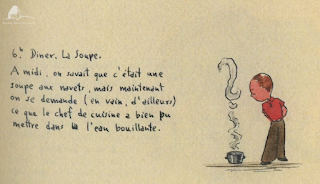 6h Diner. La Soupe.
A midi, on savait que c'était une
soupe aux navets, mais maintenant
on se demande (en vain, d'ailleurs)
ce que le chef de cuisine a bien pu
mettre dans la l'eau bouillante.